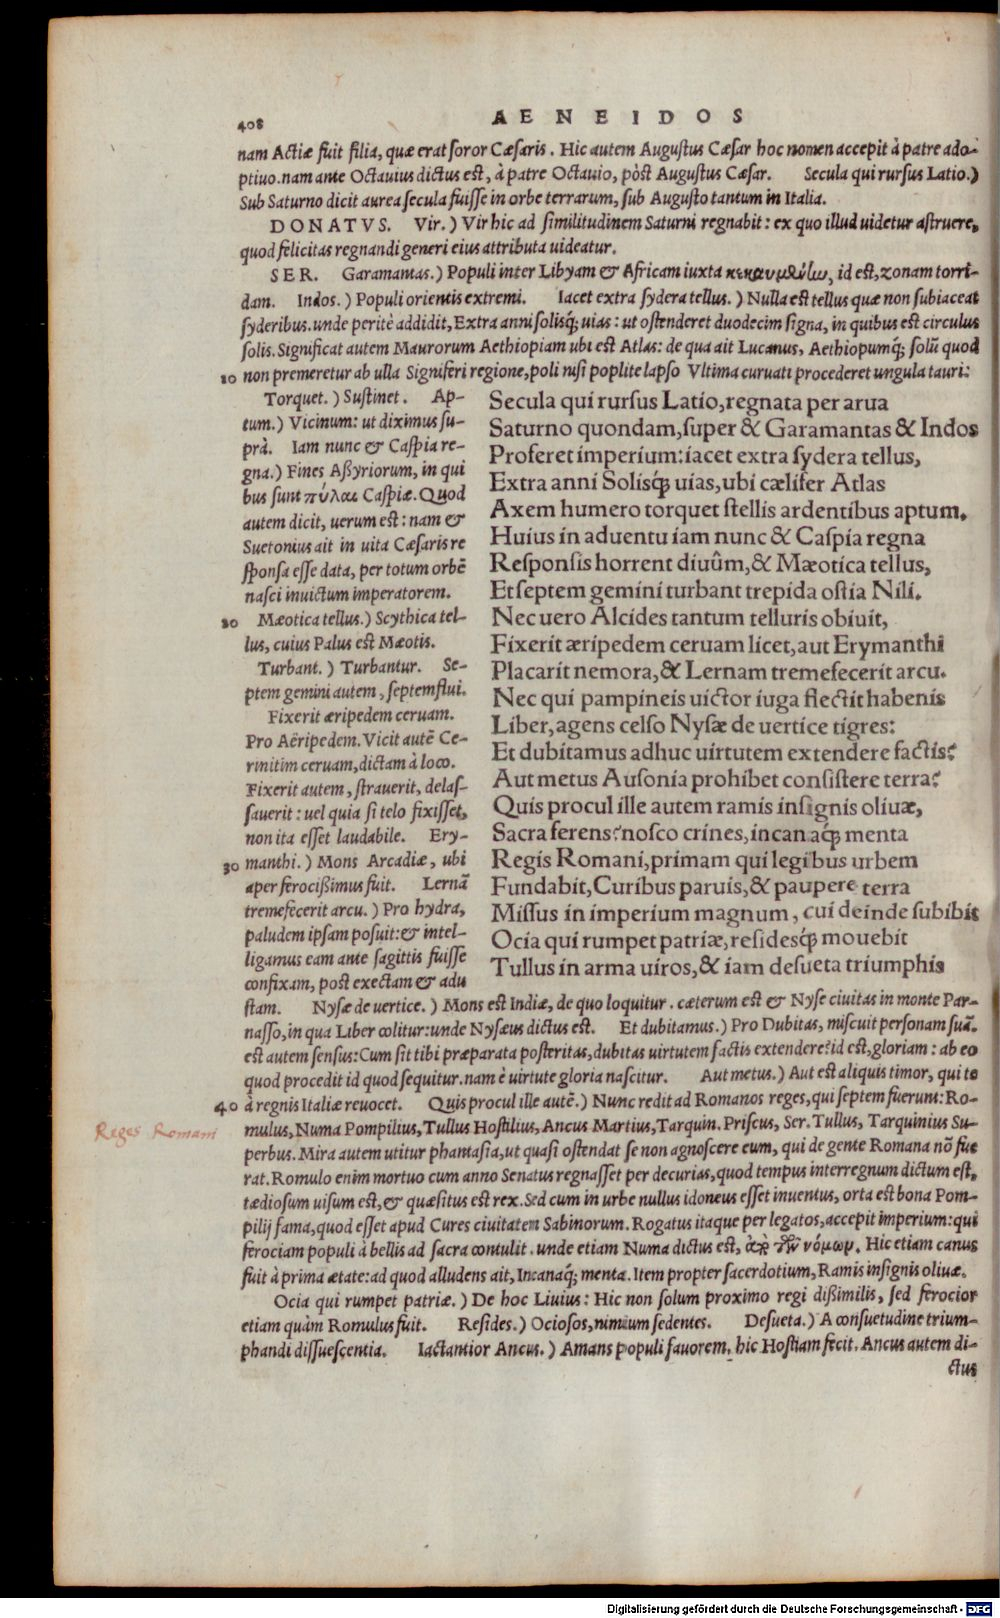 408 AENEIDOS
nam Actiæ fuit filia, quæ erat soror Cæsaris. Hic autem Augustus Cæsar hoc nomen accepit à patre ado-
ptiuo. nam ante Octauius dictus est, à patre Octauio, pòst Augustus Cæsar. Secula qui rursus Latio.)
Sub Saturno dicit aurea secula fuisse in orbe terrarum, sub Augusto tantum in Italia.
DONATVS. Vir.) Vir hic ad similitudinem Saturni regnabit: ex quo illud uidetur astruere,
quod felicitas regnandi generi eius attributa uideatur.
SER. Garamantas.) Populi inter Libyam & Africam iuxta id est, zonam torri-
dam. Indos.) Populi orientis extremi. Iacet extra sydera tellus.) Nulla est tellus quæ non subiaceat
syderibus. unde peritè addidit, Extra anni solisq́; uias: ut ostenderet duodecim signa, in quibus est circulus
solis. Significat autem Maurorum Aethiopiam ubi est Atlas: de qua ait Lucanus, Aethiopumq́; solũ quod
10 non premeretur ab ulla Signiferi regione, poli nisi poplite lapso Vltima curuati procederet ungula tauri:
Torquet.) Sustinet. Ap-
tum.) Vicinum: ut diximus su-
prà. Iam nunc & Caspia re-
gna.) Fines Aßyriorum, in qui
bus sunt πύλαι Caspiæ. Quod
autem dicit, uerum est: nam &
Suetonius ait in uita Cæsaris re
sponsa esse data, per totum orbẽ
nasci inuictum imperatorem.
20 Mæotica tellus.) Scythica tel-
lus, cuius Palus est Mæotis.
Turbant.) Turbantur. Se-
ptem gemini autem, septemflui.
Fixerit æripedem ceruam.
Pro Aëripedem. Vicit autẽ Ce-
rinitim ceruam, dictam à loco.
Fixerit autem, strauerit, delas-
sauerit: uel quia si telo fixisset,
non ita esset laudabile. Ery-
30 manthi.) Mons Arcadiæ, ubi
aper ferocißimus fuit. Lernã
tremefecerit arcu.) Pro hydra,
paludem ipsam posuit: & intel-
ligamus eam ante sagittis fuisse
confixam, post exectam & adu
stam. Nysæ de vertice.) Mons est Indiæ, de quo loquitur. cæterum est & Nyse ciuitas in monte Par-
Secula qui rursus Latio, regnata per arua
Saturno quondam, super & Garamantas & Indos
Proferet imperium: iacet extra sydera tellus,
Extra anni Solisq́; uias, ubi cælifer Atlas
Axem humero torquet stellis ardentibus aptum.
Huius in aduentu iam nunc & Caspia regna
Responsis horrent diuûm, & Mæotica tellus,
Et septem gemini turbant trepida ostia Nili.
Nec uero Alcides tantum telluris obiuit,
Fixerit æripedem ceruam licet, aut Erymanthi
Placarit nemora, & Lernam tremefecerit arcu.
Nec qui pampineis uictor iuga flectit habenis
Liber, agens celso Nysæ de uertice tigres:
Et dubitamus adhuc uirtutem extendere factis?
Aut metus Ausonia prohibet consistere terra?
Quis procul ille autem ramis insignis oliuæ,
Sacra ferens? nosco crines, incanaq́; menta
Regis Romani, primam qui legibus urbem
Fundabit, Curibus paruis, & paupere terra
Missus in imperium magnum, cui deinde subibit
Ocia qui rumpet patriæ, residesq́; mouebit
Tullus in arma uiros, & iam desueta triumphis
nasso, in qua Liber colitur: unde Nysæus dictus est. Et dubitamus.) Pro Dubitas, miscuit personam suã.
est autem sensus: Cum sit tibi præparata posteritas, dubitas uirtutem factis extendere? id est, gloriam: ab eo
quod procedit id quod sequitur. nam è uirtute gloria nascitur. Aut metus.) Aut est aliquis timor, qui te
40 à regnis Italiæ reuocet. Quis procul ille autẽ.) Nunc redit ad Romanos reges, qui septem fuerunt: Ro-
Reges Romani
mulus, Numa Pompilius, Tullus Hostilius, Ancus Martius, Tarquin. Priscus, Ser. Tullus, Tarquinius Su-
perbus. Mira autem utitur phantasia, ut quasi ostendat se non agnoscere eum, qui de gente Romana nõ fue
rat. Romulo enim mortuo cum anno Senatus regnasset per decurias, quod tempus interregnum dictum est,
tædiosum uisum est, & quæsitus est rex. Sed cum in urbe nullus idoneus esset inuentus, orta est bona Pom-
pilij fama, quod esset apud Cures ciuitatem Sabinorum. Rogatus itaque per legatos, accepit imperium: qui
ferociam populi à bellis ad sacra contulit. unde etiam Numa dictus est, ἀπὸ τῶν νόμων. Hic etiam canus
fuit à prima ætate: ad quod alludens ait, Incanaq́; menta. Item propter sacerdotium, Ramis insignis oliuæ.
Ocia qui rumpet patriæ.) De hoc Liuius: Hic non solum proximo regi dißimilis, sed ferocior
etiam quàm Romulus fuit. Resides.) Ociosos, nimium sedentes. Desueta.) A consuetudine trium-
phandi dissuescentia. Iactantior Ancus.) Amans populi fauorem. hic Hostiam fecit. Ancus autem di-
ctus
Digitalisierung gefördert durch die Deutsche Forschungsgemeinschaft - DFG